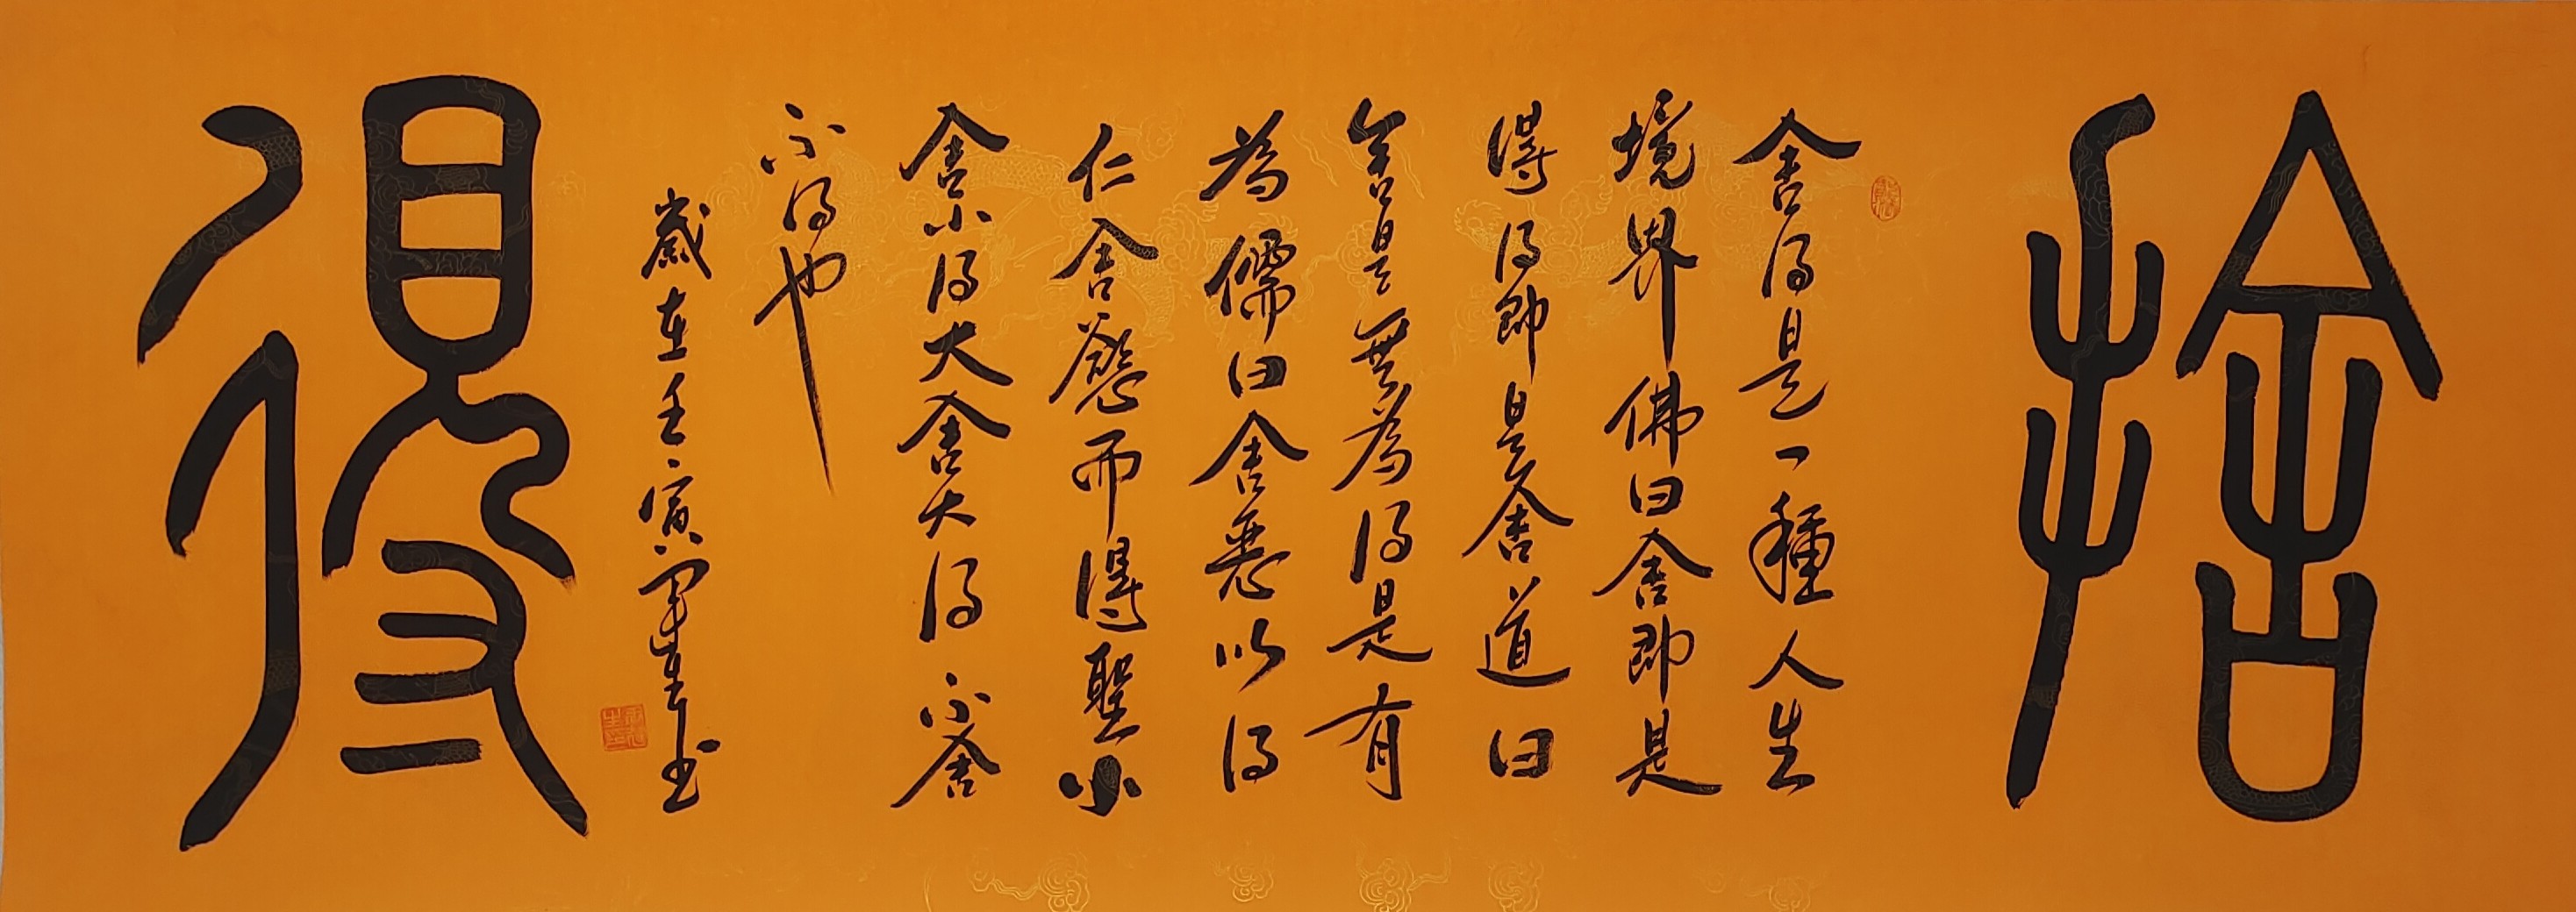 捨
舍得是一種人生
境界佛曰舍即是
得得即是舍道曰
舍是無為得是有
為儒曰舍惡以得
仁舍慾而得聖小
舍小得大舍大得不舍
不得也
歲在壬寅軍生書
得